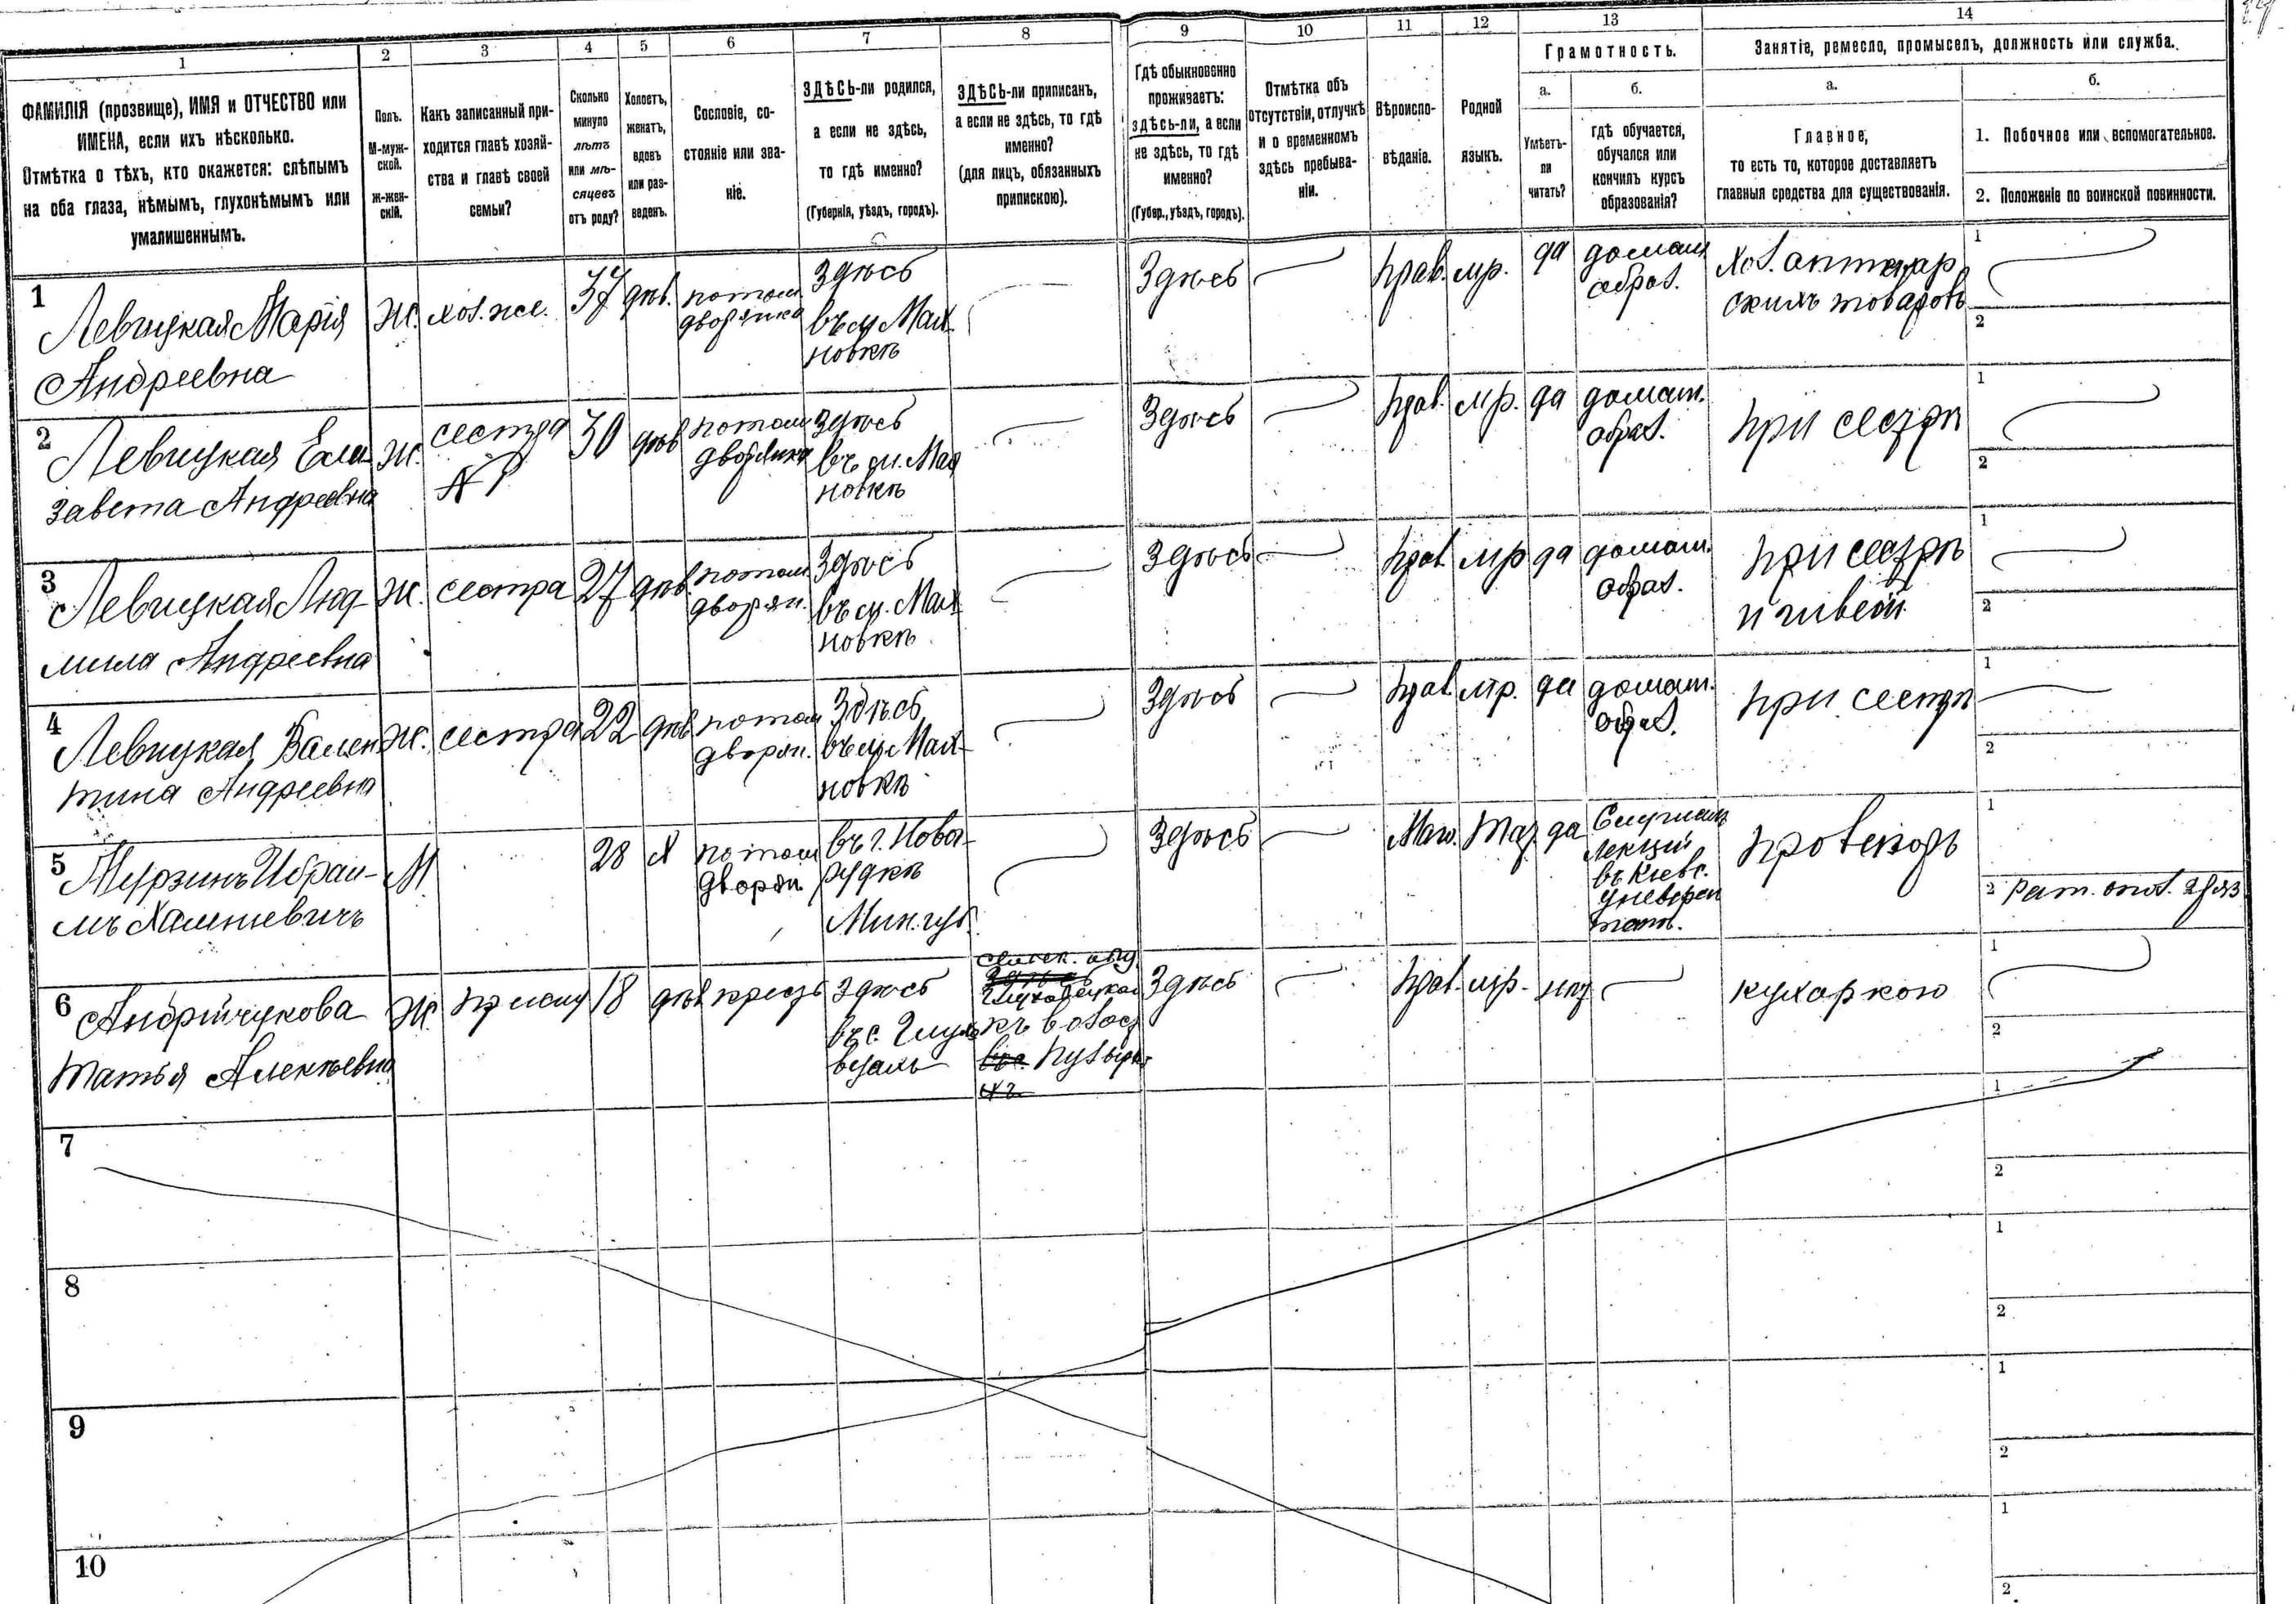 1
2
3
4
5
6
7
8
9
10
11
12
13
14
ФАМИЛІЯ (прозвище), ИМЯ и ОТЧЕСТВО или
ИМЕНА, если ихъ нѣсколько.
Отмѣтка о тѣхъ, кто окажется: слѣпымъ
на оба глаза, нѣмымъ, глухонѣмымъ или
умалишеннымъ.
Полъ.
М-муж-
ской.
ж-жен-
скій.
Какъ записанный при-
ходится главѣ хозяй-
ства и главѣ своей
семьи?
Сколько
минуло
лѣтъ
или мѣ-
сяцевъ
отъ роду?
Холостъ,
женатъ,
вдовъ
или раз-
веденъ.
Сословіе, со-
стояніе или зва-
ніе.
ЗДѢСЬ-ли родился,
а если не здѣсь,
то гдѣ именно?
(Губернія, уѣздъ, городъ).
ЗДѢСЬ-ли приписанъ,
а если не здѣсь, то гдѣ
именно?
(для лицъ, обязанныхъ
припискою).
Гдѣ обыкновенно
проживаетъ:
здѣсь-ли, а если
не здѣсь, то гдѣ
именно?
(Губер., уѣздъ, городъ).
Отмѣтка объ
отсутствіи, отлучкѣ
и о временномъ
здѣсь пребыва-
ніи.
Вѣроиспо-
вѣданіе.
Родной
языкъ.
Грамотность.
а.
Умѣетъ-
ли
читать?
б.
гдѣ обучается,
обучался или
кончилъ курсъ
образованія?
Занятіе, ремесло, промыселъ, должность или служба.
а.
Главное,
то есть то, которое доставляетъ
главныя средства для существованія.
б.
1. Побочное или вспомогательное.
2. Положеніе по воинской повинности.
1
Левицкая Марія
Андреевна
Ж.
хоз. же.
37
дѣв.
потом.
дворянка
Здѣсь
въ м. Мах-
новкѣ
Здѣсь
прав.
мр.
да
домаш.
образ.
Хоз. аптекар
скихъ товаровъ
1
2
2
Левицкая Ели-
завета Андреевна
Ж.
сестра
30
дѣв
потом
дворянка
Здѣсь
въ м. Мах
новкѣ
Здѣсь
прав.
мр.
да
домаш.
образ.
при сестрѣ
1
2
3
Левицкая Люд-
мила Андреевна
Ж.
сестра
27
дѣв.
потом.
дворян.
Здѣсь
въ м. Мах
новкѣ
Здѣсь
прав
мр
да
домаш.
образ.
при сестрѣ
и швеей
1
2
4
Левицкая Вален
тина Андреевна
Ж.
сестра
22
дѣв
потом
дворян.
Здѣсь
въ м. Мах-
новкѣ
Здѣсь
прав.
мр.
да
домаш.
образ.
при сестрѣ
1
2
5
Мурзинъ Ибраи-
мъ Халиневичъ
М
28
Х
потом
дворян
въ г.Ново-
рудкѣ
Мин. губ.
Здѣсь
Маг.
Тат.
да
Слушалъ
лекціи
въ Кіевс.
Универси
тетѣ.
провизоръ
1
2 Рат. опол. 2 раз
6
Андрійчукова
Татья Алексѣевна
Ж.
прислуг
18
дѣв
крест
Здѣсь
въ с.
Здѣсь
прав.
мр.
нѣт
кухаркою
1
2
7
1
2
8
1
2
9
1
2
10
1
2